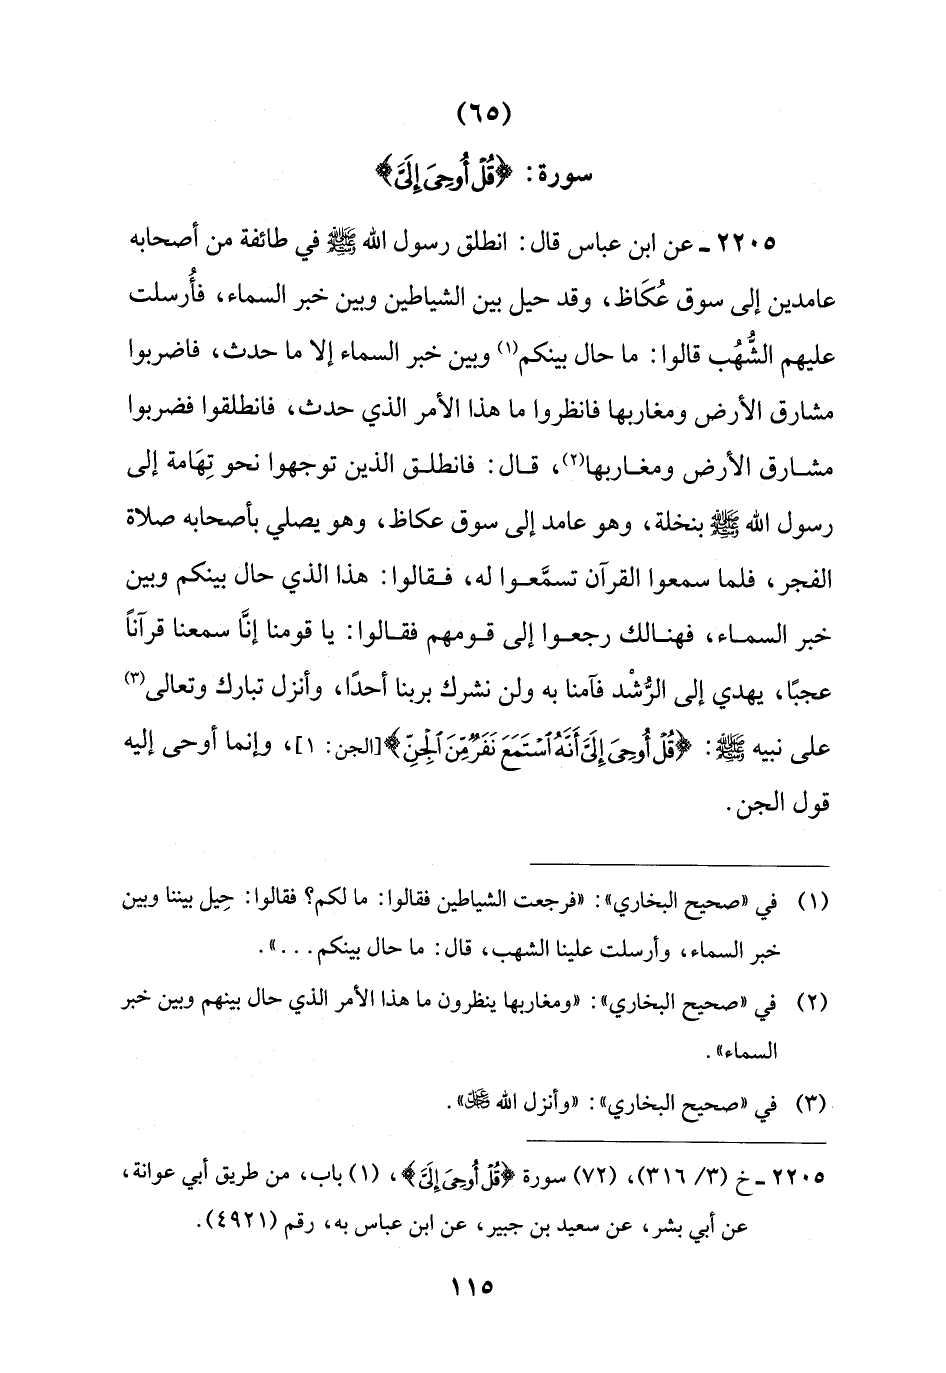 (٦٥)
سورة: ﴿قُلْ أُوحِيَ إِلَيَّ﴾
٢٢٠٥ ـ عن ابن عباس قال: انطلق رسول الله ﷺ في طائفة من أصحابه
عامدين إلى سوق عُكَاظ، وقد حيل بين الشياطين وبين خبر السماء، فأُرسلت
عليهم الشُّهُب قالوا: ما حال بينكم(١) وبين خبر السماء إلا ما حدث، فاضربوا
مشارق الأرض ومغاربها فانظروا ما هذا الأمر الذي حدث، فانطلقوا فضربوا
مشارق الأرض ومغاربها(٢)، قال: فانطلق الذين توجهوا نحو تِهَامة إلى
رسول الله ﷺ بنخلة، وهو عامد إلى سوق عكاظ، وهو يصلي بأصحابه صلاة
الفجر، فلما سمعوا القرآن تسمَّعوا له، فقالوا: هذا الذي حال بينكم وبين
خبر السماء، فهنالك رجعوا إلى قومهم فقالوا: يا قومنا إنَّا سمعنا قرآناً
عجبًا، يهدي إلى الرُّشْد فآمنا به ولن نشرك بربنا أحدًا، وأنزل تبارك وتعالى(٣)
على نبيه ﷺ: ﴿قُلْ أُوحِيَ إِلَيَّ أَنَّهُ ٱسْتَمَعَ نَفَرٌ مِّنَ ٱلْجِنِّ﴾ [الجن: ١]، وإنما أوحى إليه
قول الجن.
(١) في «صحيح البخاري»: «فرجعت الشياطين فقالوا: ما لكم؟ فقالوا: حِيل بيننا وبين
خبر السماء، وأرسلت علينا الشهب، قال: ما حال بينكم...».
(٢) في «صحيح البخاري»: «ومغاربها ينظرون ما هذا الأمر الذي حال بينهم وبين خبر
السماء».
(٣) في «صحيح البخاري»: «وأنزل الله ﷻ».
٢٢٠٥ ـ خ (٣/ ٣١٦)، (٧٢) سورة ﴿قُلْ أُوحِيَ إِلَيَّ﴾، (١) باب، من طريق أبي عوانة،
عن أبي بشر، عن سعيد بن جبير، عن ابن عباس به، رقم (٤٩٢١).
١١٥